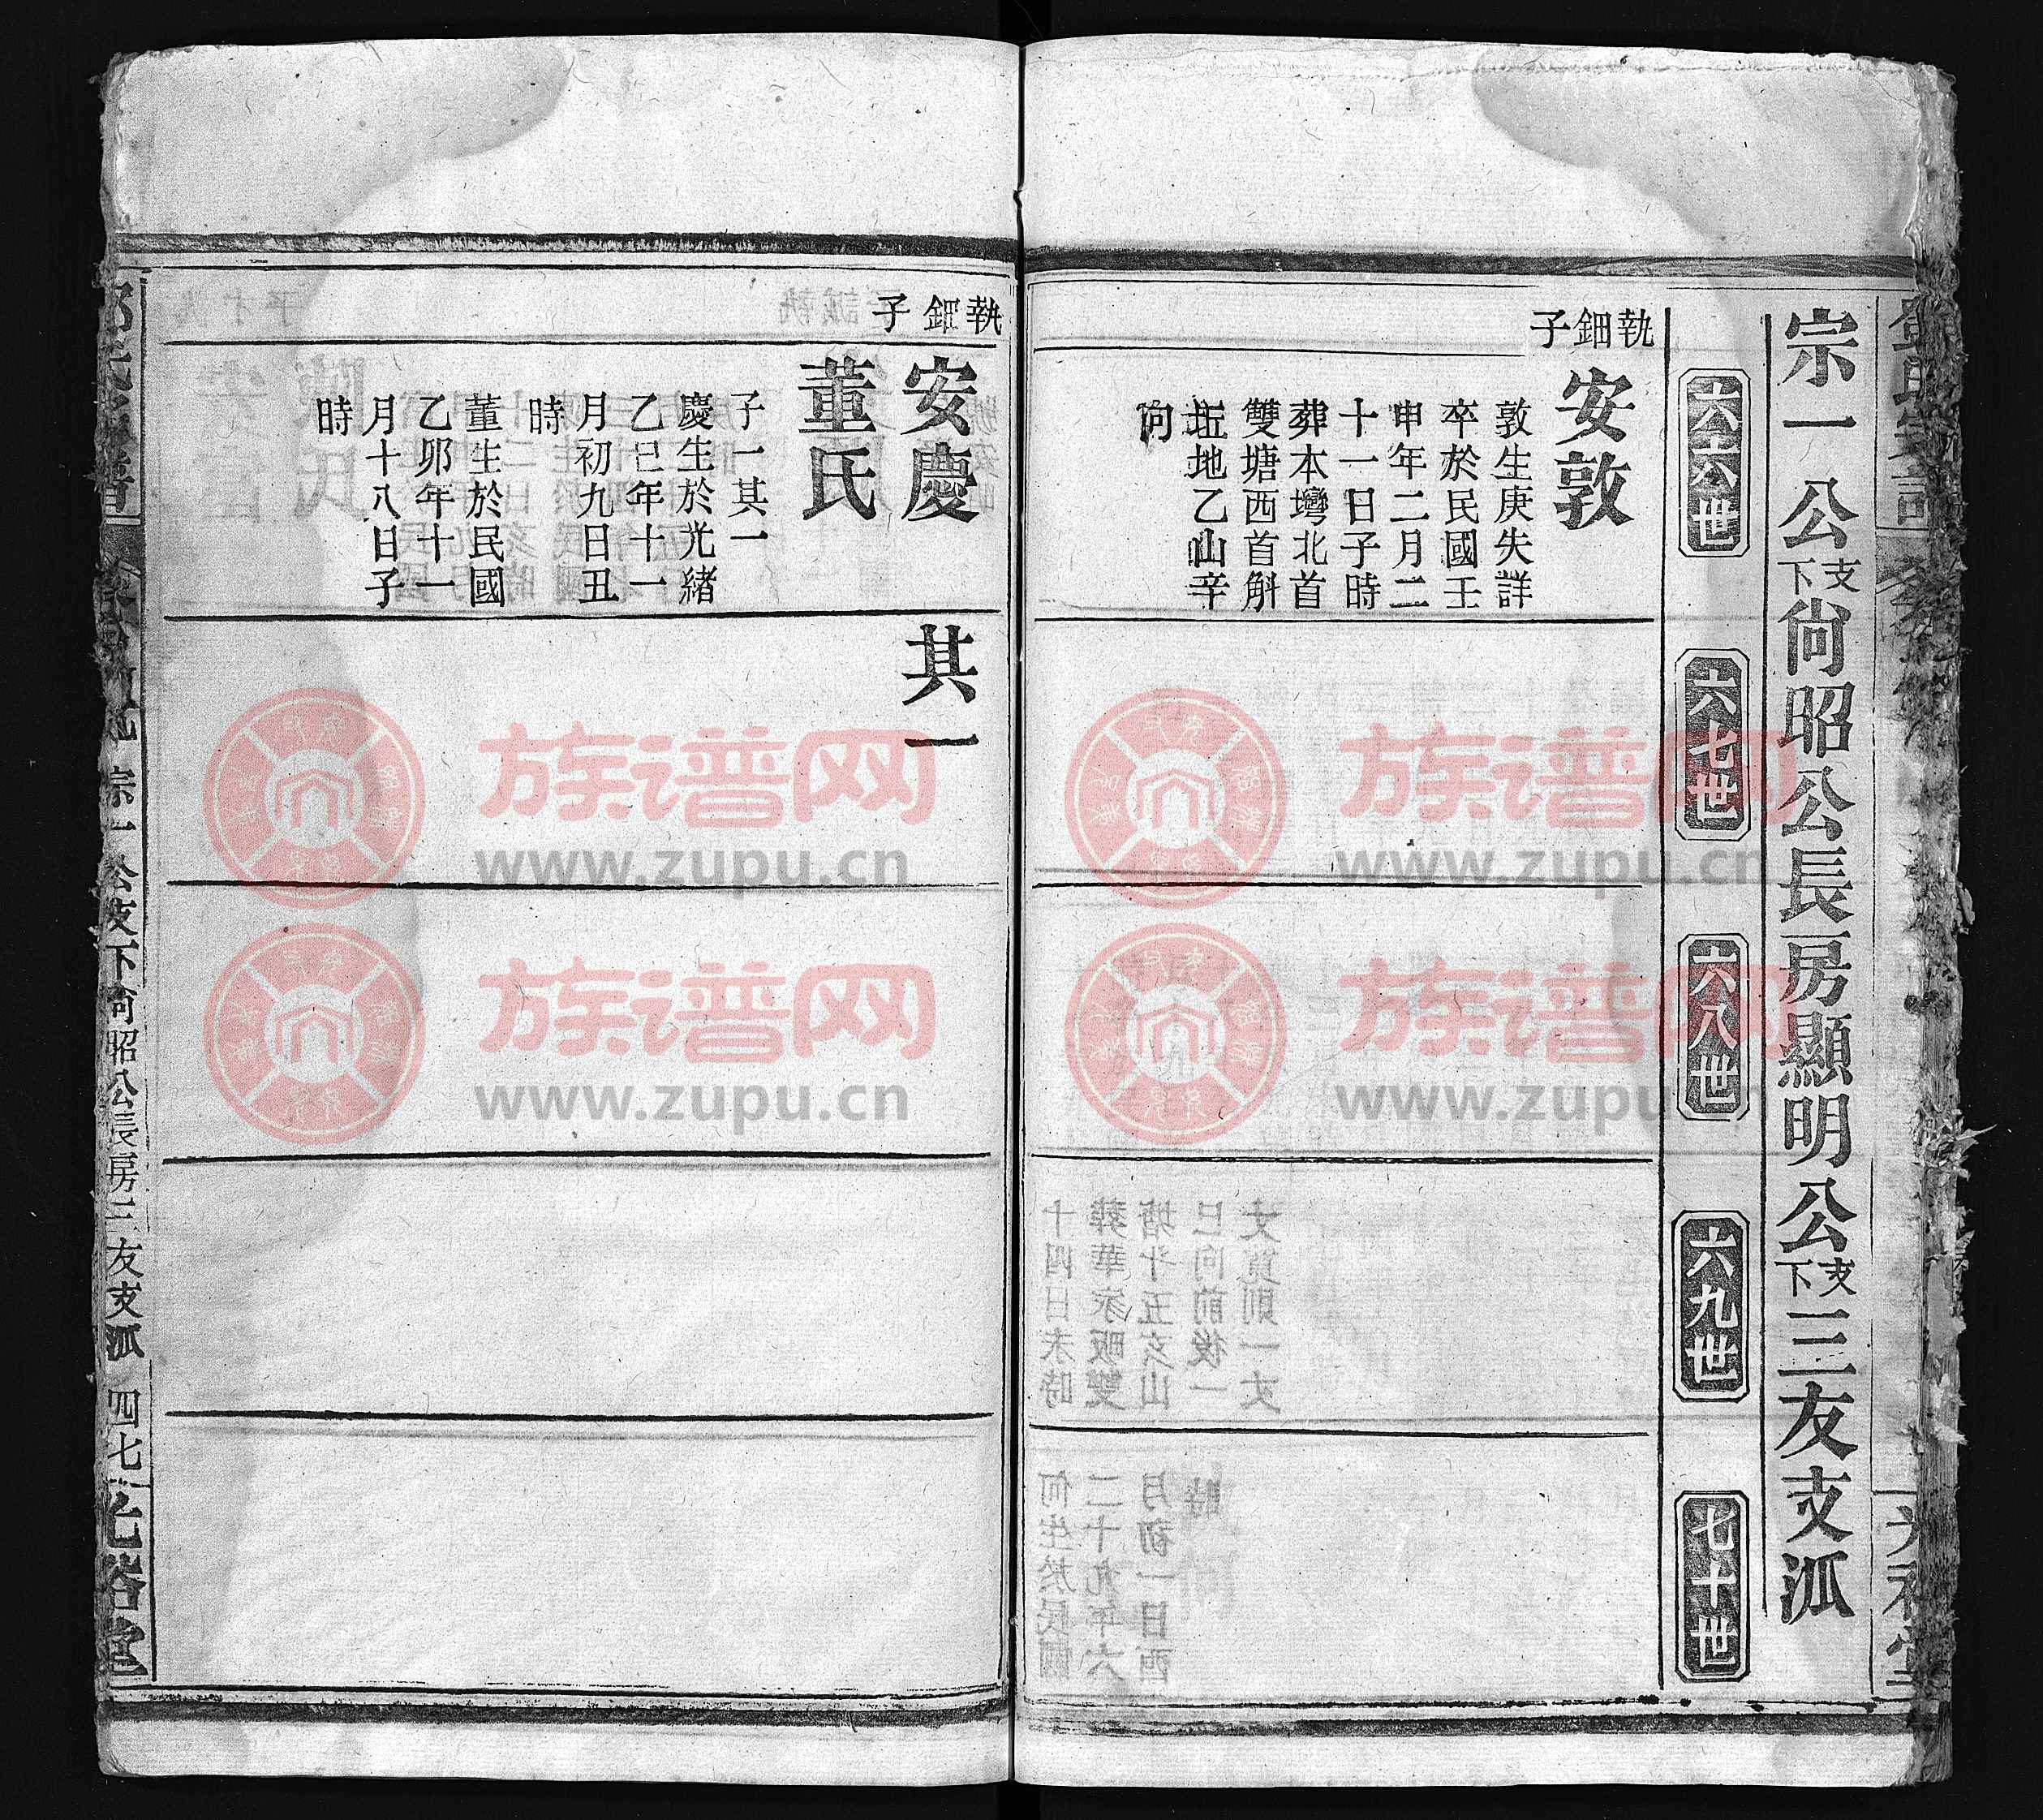 宗一公支下尙昭公長房顯明公支下三友支派
六六世
六七世
六八世
六九世
七十世
執鈿子
安敦
敦生庚失詳
卒於民國壬
申年二月二
十一日子時
葬本壪北首
雙塘西首斛
坵地乙山辛
向
執鈿子
安慶
董氏
子一其一
慶生於光緒
乙巳年十一
月初九日丑
時
董生於民國
乙卯年十一
月十八日子
時
其一
宗一公支下尙昭公長房三友支派
四七
光裕堂
族谱网
www.zupu.cn
族谱网
www.zupu.cn
族谱网
www.zupu.cn
族谱网
www.zupu.cn